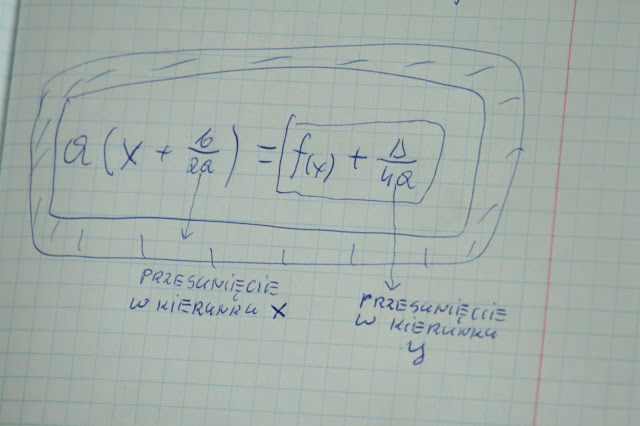 a(x + b/2a) = f(x) + Δ/4a
PRZESUNIĘCIE
W KIERUNKU X
PRZESUNIĘCIE
W KIERUNKU
y